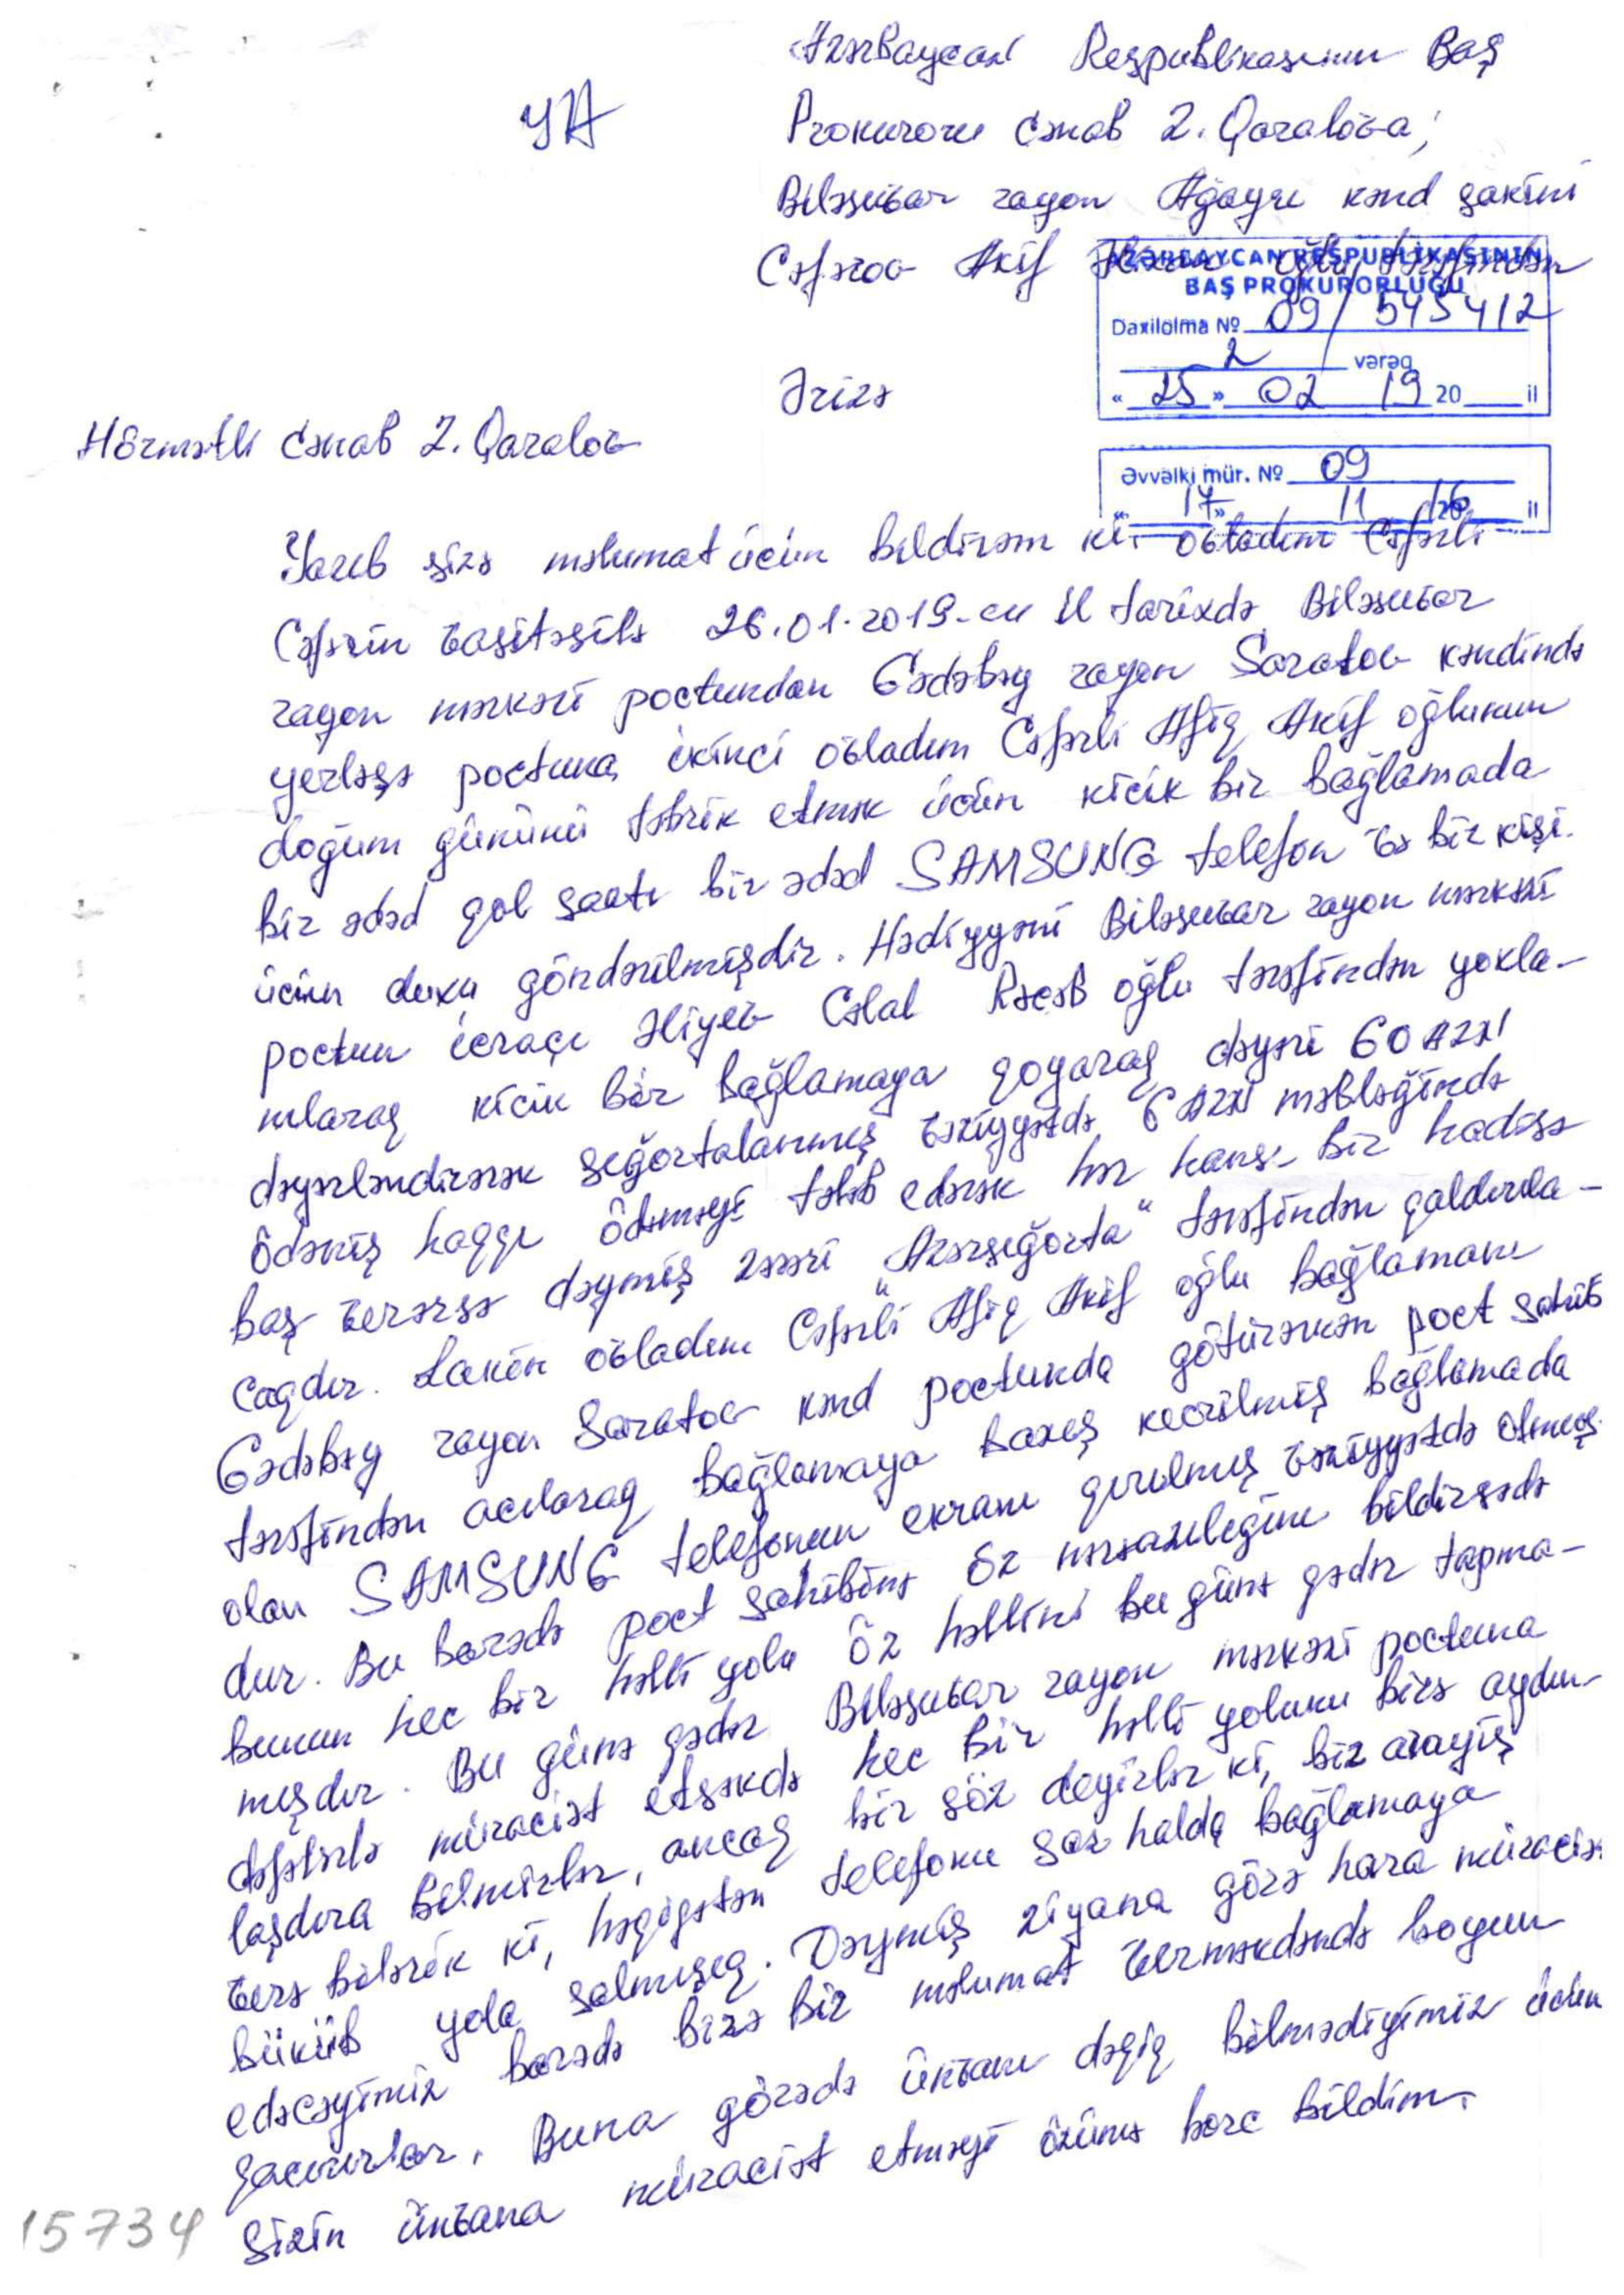 Azərbaycan Respublikasının Baş
YA
Prokuroru cənab Z. Qaralova,
Biləsuvar rayon Ağayrı kənd sakini
Cəfərov Akif oğlu tərəfindən
AZƏRBAYCAN RESPUBLİKASININ
BAŞ PROKURORLUĞU
Daxilolma № 09/545412
2 vərəq
« 25 » 02 19 20 il
Ərizə
Hörmətli cənab Z. Qaralov
Əvvəlki mür. № 09
« 17 » 11 16 20 il
Yazıb sizə məlumat ücün bildirəm ki, övladım Cəfərli
Cəfərin vasitəsilə 26.01.2019-cu il tarixdə Biləsuvar
rayon mərkəzi poctundan Gədəbəy rayon Saratov kəndində
yerləşə poctuna ikinci övladım Cəfərli Afiq Akif oğlunun
doğum gününü təbrik etmək ücün kicik bir bağlamada
bir ədəd qol saatı bir ədəd SAMSUNG telefon və bir kişi
ücün duxu göndərilmişdir. Hədiyyəni Biləsuvar rayon mərkəzi
poctun icraçı Əliyev Cəlal Rəcəb oğlu tərəfindən yoxla-
nılaraq kicik bir bağlamaya qoyaraq dəyəri 60 AZN
dəyərləndirərək sığortalanmış vəziyyətdə 6 AZN məbləğində
ödəniş haqqı ödəməyi tələb edərək hər hansı bir hadisə
baş verərsə dəymiş zərəri "Azərsığorta" tərəfindən qaldırıla-
caqdır. Lakin övladım Cəfərli Afiq Akif oğlu bağlamanı
Gədəbəy rayon Saratov kənd poctunda götürərkən poct sahib
tərəfindən acılaraq bağlamaya baxış kecrilmiş bağlamada
olan SAMSUNG telefonun ekranı qırılmış vəziyyətdə olmuş-
dur. Bu barədə poct sahibinə öz narazılığını bildirsədə
bunun hec bir həlli yolu öz həllini bu günə qədər tapma-
mışdır. Bu günə qədər Biləsuvar rayon mərkəzi poctuna
dəfələrlə müraciət etsəkdə hec bir həlli yolunu bizə aydın-
laşdıra bilmirlər, ancaq bir söz deyirlər ki, biz arayış
verə bilərik ki, həqiqətən telefonu saz halda bağlamaya
büküb yola salmışıq. Dəymiş ziyana görə hara müraciət
edəcəyimiz barədə bizə bir məlumat verməkdəndə boyun
qacırırlar. Buna görədə ünvanı dəqiq bilmədiyimiz ücün
Sizin ünvana müraciət etməyi özümə borc bildim.
15734